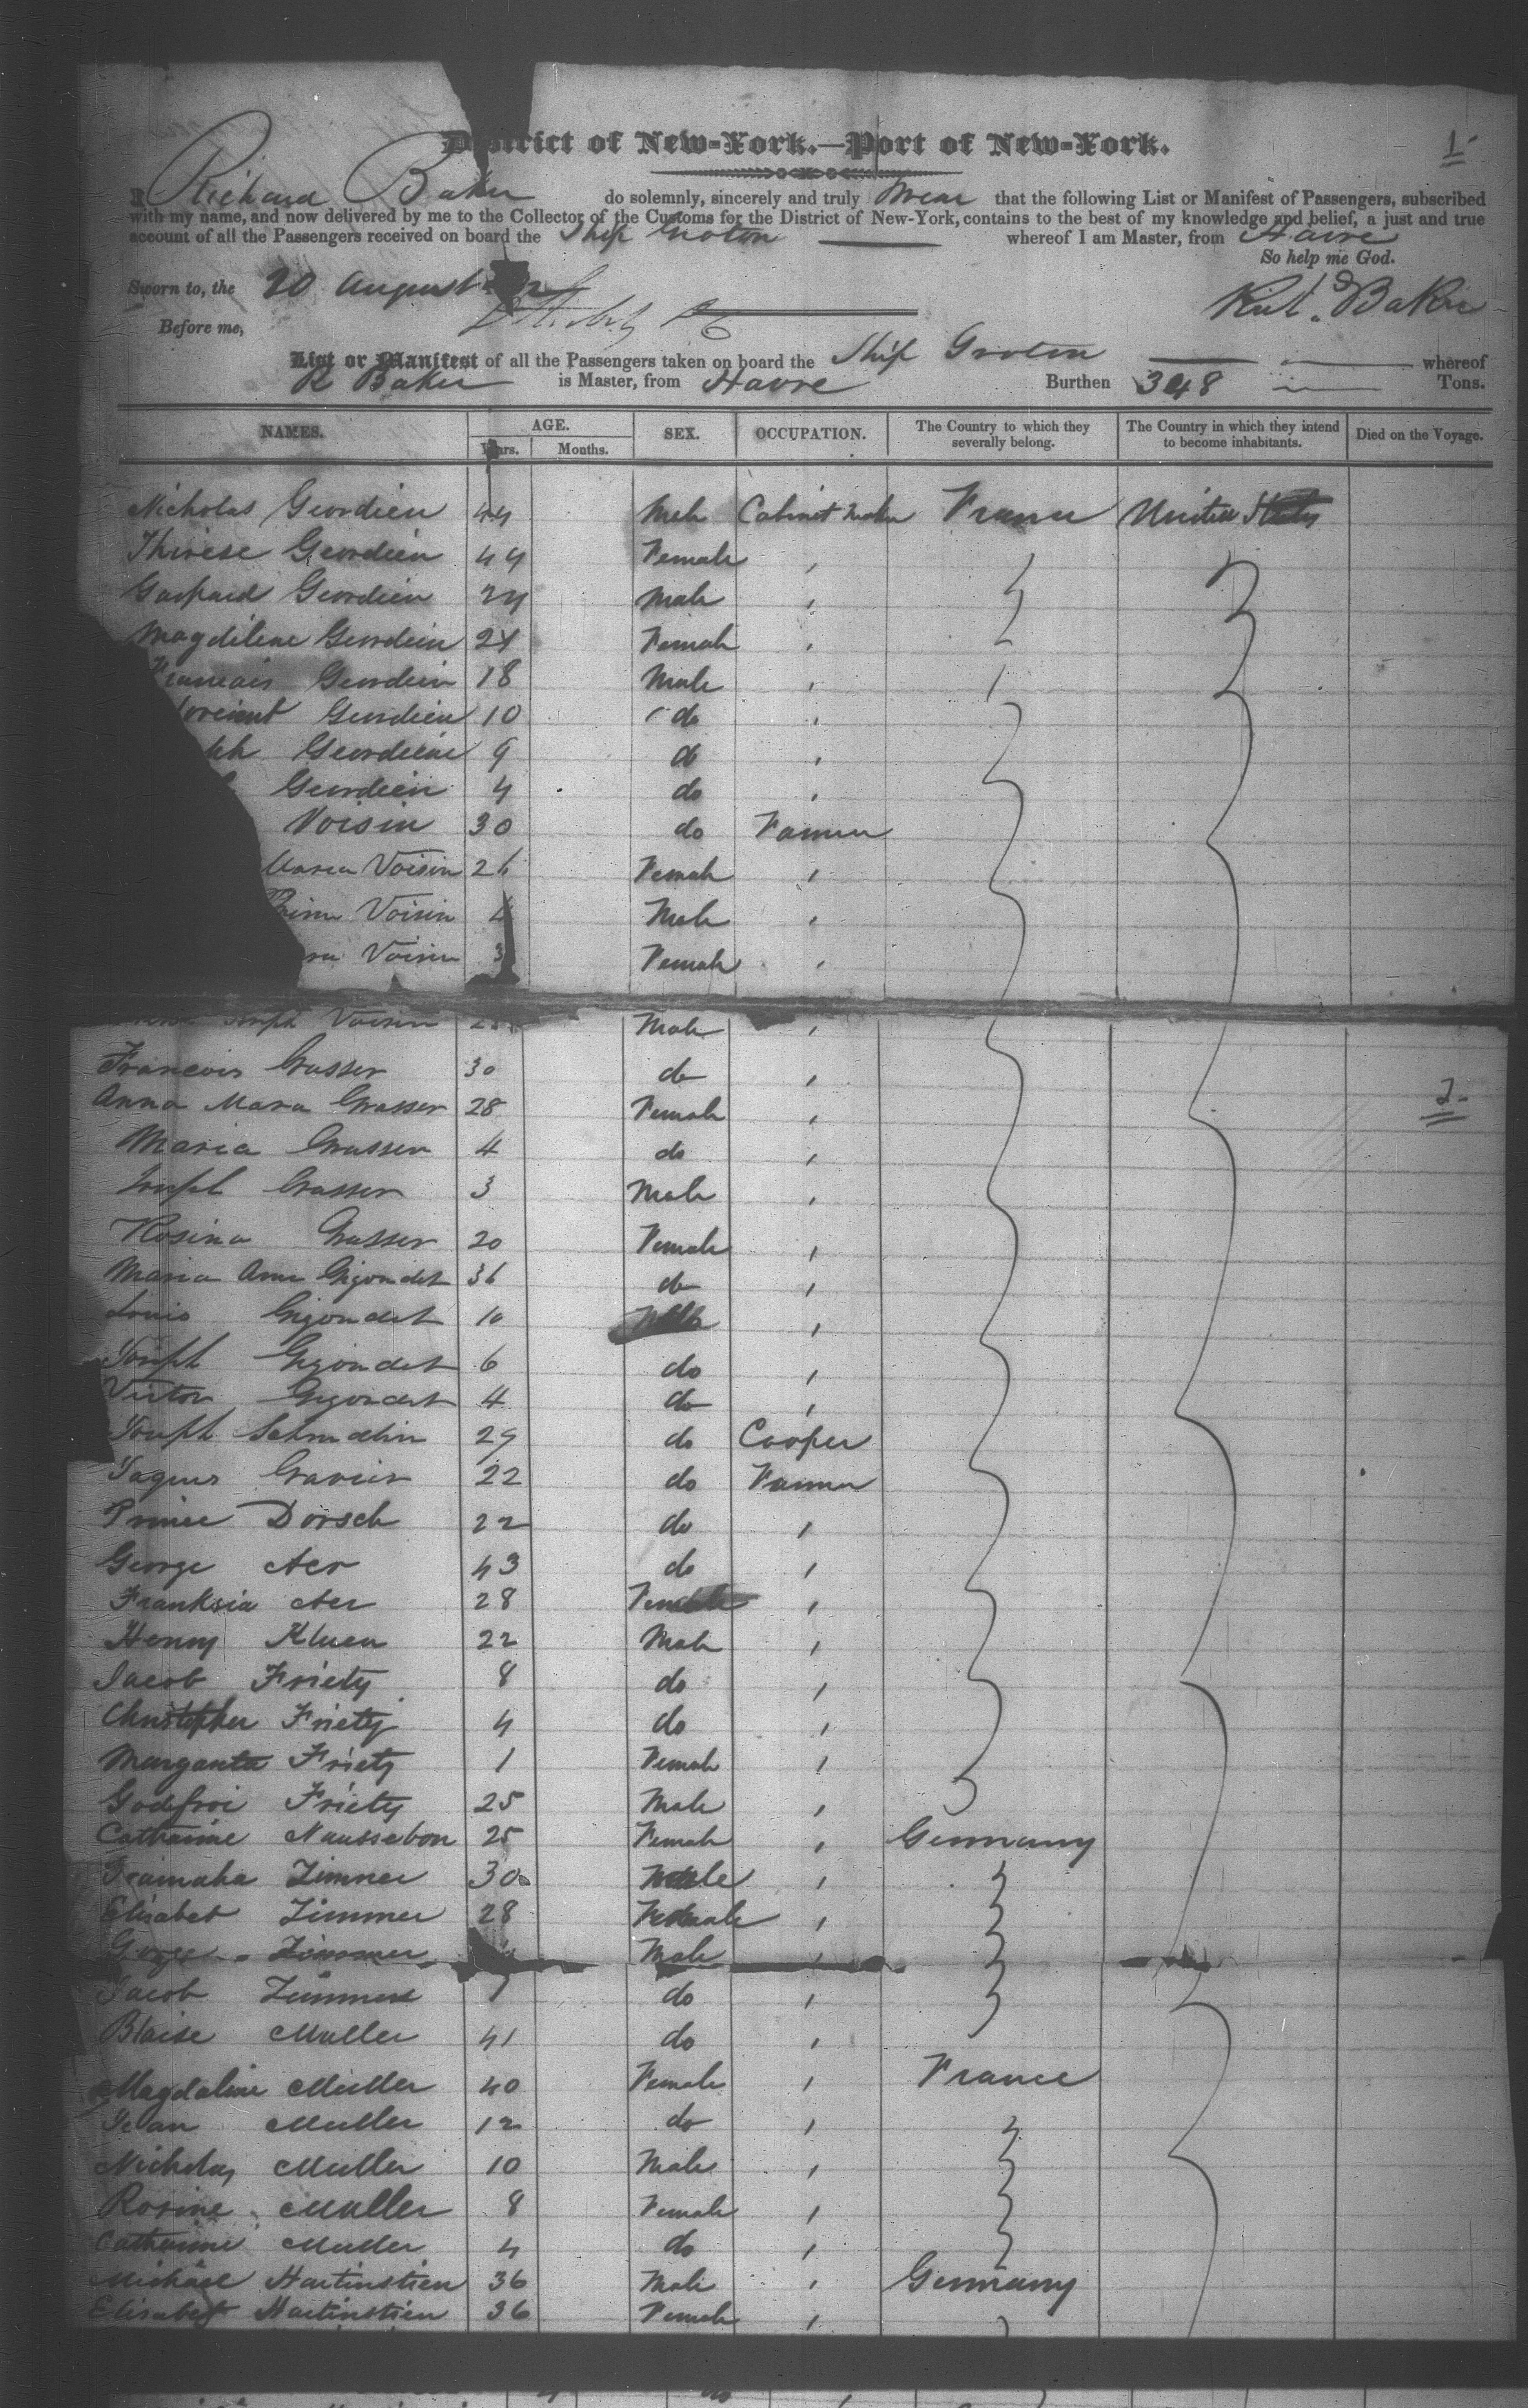 District of New-York.—Port of New-York.
1
I Richard Baker do solemnly, sincerely and truly swear that the following List or Manifest of Passengers, subscribed
with my name, and now delivered by me to the Collector of the Customs for the District of New-York, contains to the best of my knowledge and belief, a just and true
account of all the Passengers received on board the Ship Groton whereof I am Master, from Havre
So help me God.
Sworn to, the 20 August
Richd. Baker
Before me,
List or Manifest of all the Passengers taken on board the Ship Groton whereof
R Baker is Master, from Havre Burthen 348 Tons.
NAMES. AGE. SEX. OCCUPATION. The Country to which they severally belong. The Country in which they intend to become inhabitants. Died on the Voyage.
Years. Months.
Nicholas Geordien 44 Male Cabinet Maker France United States
Therese Geordien 44 Female
Gaspard Geordien 24 Male
Magdilene Geordein 21 Female
Francais Geordien 18 Male
Geordien 10 do
Geordien 9 do
Geordien 4 do
Voisin 30 do Farmer
Maria Voisin 26 Female
Voisin Male
Voisin 3 Female
Joseph Voisin Male
Francois Grasser 30 do
2
Anna Mara Grasser 28 Female
Maria Grasser 4 do
Joseph Grasser 3 Male
Rosina Grasser 20 Female
Maria Ann Gigondet 36 do
Louis Gigondet 10 Male
Joseph Gigondet 6 do
Victor Gigondet 4 do
Joseph Schmdlin 29 do Cooper
Jaques Gravier 22 do Farmer
Dorsch 22 do
George Aer 43 do
Franksia Aer 28 Female
Henry Kluen 22 Male
Jacob Friety 8 do
Christopher Friety 4 do
Margareta Friety 1 Female
Godefroi Friety 25 Male
Catharine Naussebon 25 Female Germany
Zimmer 30 Male
Elisabet Zimmer 28 Female
George Zimmer Male
Jacob Zimmer do
Blaise Muller 41 do
Magdaline Muller 40 Female France
Jean Muller 12 do
Nicholas Muller 10 Male
Rosine Muller 8 Female
Catharine Muller 4 do
Michael Hartinstien 36 Male Germany
Elisabeth Hartinstien 36 Female